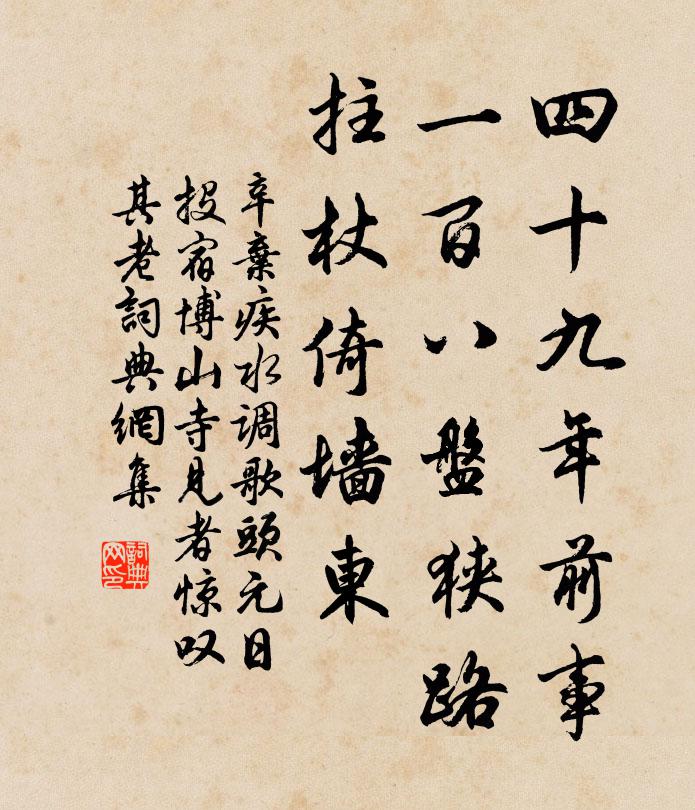 四十九年前事
一百八盤狹路
拄杖倚墙東
辛棄疾水调歌頭元日
投宿博山寺见者惊叹
其老詞典網集
詞典网印